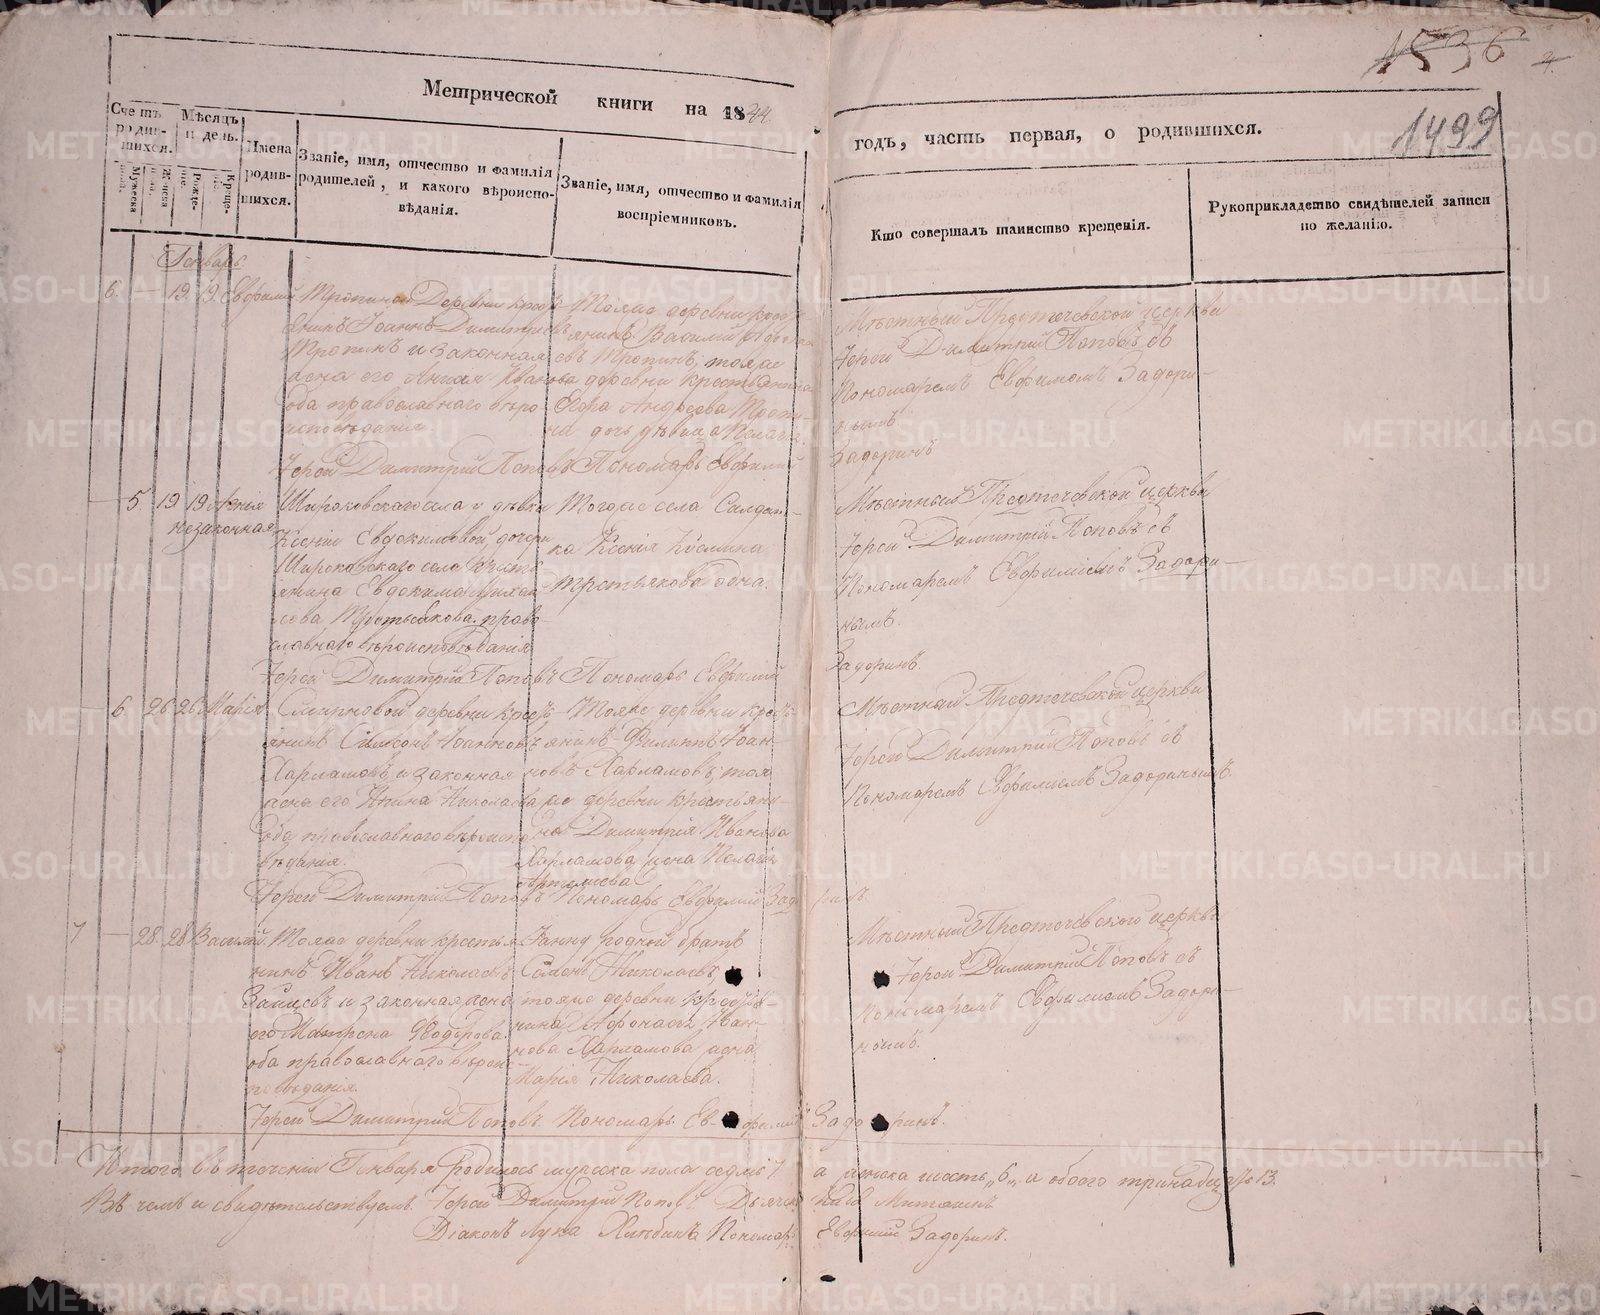 1536
1499
Метрической книги на 1844
годъ, часть первая, о родившихся.
Счетъ родившихся.
Мѣсяцъ и день.
Имена родившихся.
Званіе, имя, отчество и фамилія родителей, и какого вѣроисповѣданія.
Званіе, имя, отчество и фамилія воспріемниковъ.
Кто совершалъ таинство крещенія.
Рукоприкладство свидѣтелей записи по желанію.
Мужеска пола.
Женска пола.
Рожденіе.
Крещеніе.
Генварь
6. — 19. 19. Евфимій
Тропиной Деревни крестьянинъ Іоаннъ Димитріевъ
Тропинъ и законная
жена его Іванова
оба православнаго вѣроисповѣданія
Тояже деревни крестьянинъ Василій
Тропинъ, тояже
деревни крестьянина
Егора Андреева Тропина дочь девица
Мѣстный Предтечевской церкви
Іерей Димитрій Поповъ съ
Пономаремъ Евфимомъ Задоринымъ
Іерей Димитрій Поповъ Пономарь Евфимій
Задоринъ
— 5. 19 19
незаконная
Широковскаго села у дѣвки
Ксеніи Евдокимовой дочери
Широковскаго села крестьянина Евдокима
Третьякова. православнаго вѣроисповѣданія
Тогоже села Солдатка Ксенія Козмина
Третьякова одна.
Мѣстный Предтечевской церкви
Іерей Димитрій Поповъ съ
Пономаремъ Евфиміемъ Задоринымъ.
Іерей Димитрій Поповъ Пономарь Евфимій
Задоринъ.
— 6. 26 26 Марія
Смирновой деревни крестьянинъ Симеонъ Іоанновъ
Харламовъ и законная
жена его Николаева
оба православнаго вѣроисповѣданія.
Тояже деревни крестьянинъ Филиппъ Іоанновъ Харламовъ, тояже деревни крестьянина Димитрія Иванова
Харламова жена Пелагія
Артемиева
Мѣстный Предтечевской церкви
Іерей Димитрій Поповъ съ
Пономаремъ Евфиміемъ Задоринымъ.
Іерей Димитрій Поповъ Пономарь Евфимій Задоринъ.
7 — 28 28 Василій
Тояже деревни крестьянинъ Иванъ Николаевъ
Зайцевъ и законная жена
его Матрена Феодорова
оба православнаго вѣроисповѣданія.
родной братъ
Семенъ Николаевъ
тояже деревни крестьянина Афонасія Иванова Харламова жена
Марія Николаева.
Мѣстный Предтечевской церкви
Іерей Димитрій Поповъ съ
Пономаремъ Евфиміемъ Задоринымъ.
Іерей Димитрій Поповъ. Пономарь Евфимій Задоринъ.
Итого въ теченіи Генваря родилось мужеска пола седмь 7 а женска шесть „6„ а обоего тринадцать 13.
Въ чемъ и свидѣтельствуемъ. Іерей Димитрій Поповъ
Діаконъ Лука Хлѣбинъ Пономарь Евфимій Задоринъ.
METRIKI.GASO-URAL.RU